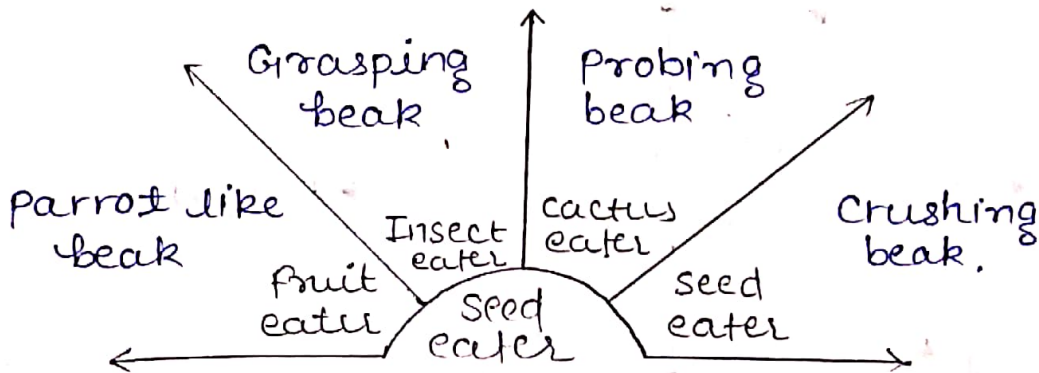 Grasping
beak
Probing
beak
Parrot like
beak
Crushing
beak.
Insect
eater
cactus
eater
fruit
eater
seed
eater
seed
eater